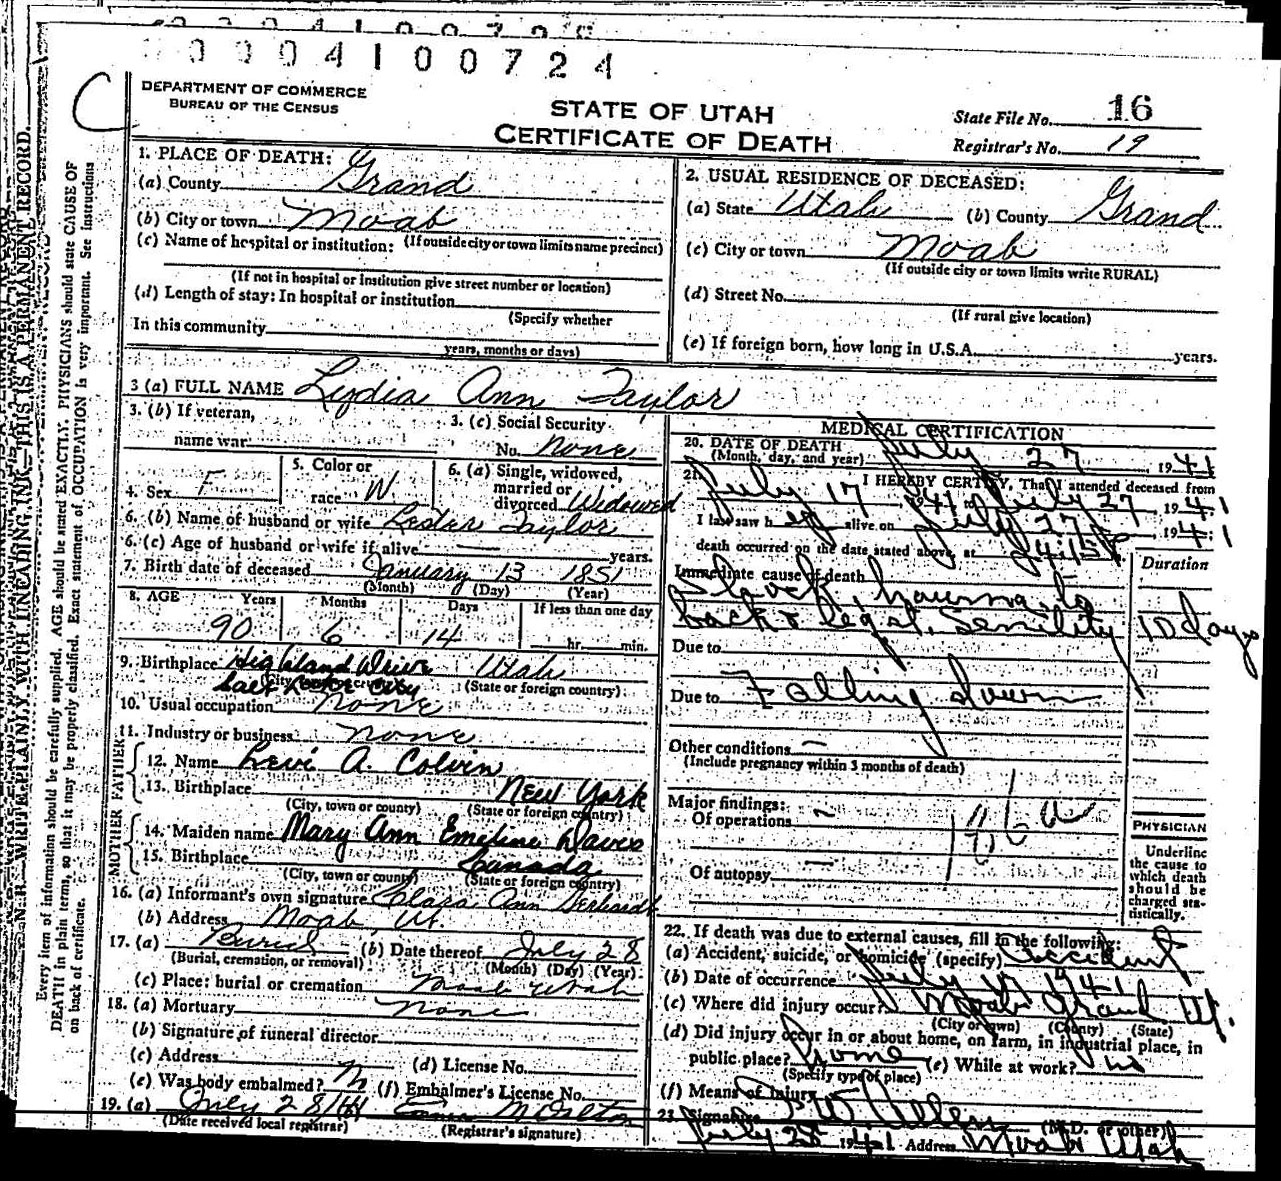 0 0 0 4 1 0 0 7 2 4
C
DEPARTMENT OF COMMERCE
BUREAU OF THE CENSUS
STATE OF UTAH
CERTIFICATE OF DEATH
State File No. 16
Registrar's No. 19
N. B.—WRITE PLAINLY WITH UNFADING INK—THIS IS A PERMANENT RECORD.
Every item of information should be carefully supplied. AGE should be stated EXACTLY. PHYSICIANS should state CAUSE OF
DEATH in plain terms, so that it may be properly classified. Exact statement of OCCUPATION is very important. See instructions
on back of certificate.
1. PLACE OF DEATH:
(a) County Grand
(b) City or town Moab
(If outside city or town limits name precinct)
(c) Name of hospital or institution:
(If not in hospital or institution give street number or location)
(d) Length of stay: In hospital or institution
(Specify whether
In this community
years, months or days)
2. USUAL RESIDENCE OF DECEASED:
(a) State Utah (b) County Grand
(c) City or town Moab
(If outside city or town limits write RURAL)
(d) Street No.
(If rural give location)
(e) If foreign born, how long in U.S.A. years.
3 (a) FULL NAME Lydia Ann Taylor
3. (b) If veteran,
name war
3. (c) Social Security
No. None
4. Sex F
5. Color or
race W
6. (a) Single, widowed,
married or
divorced Widowed
6. (b) Name of husband or wife Lester Taylor
6. (c) Age of husband or wife if alive — years.
7. Birth date of deceased January 13 1851
(Month) (Day) (Year)
8. AGE Years Months Days If less than one day
90 6 14 hr. min.
9. Birthplace Highland Drive Utah
Salt Lake City
(City, town or county) (State or foreign country)
10. Usual occupation none
11. Industry or business none
FATHER
12. Name Levi A. Colvin
13. Birthplace New York
(City, town or county) (State or foreign country)
MOTHER
14. Maiden name Mary Ann Emeline Davis
15. Birthplace Canada
(City, town or county) (State or foreign country)
16. (a) Informant's own signature Clara Ann Gerhardt
(b) Address Moab, Ut.
17. (a) Burial (b) Date thereof July 28
(Burial, cremation, or removal) (Month) (Day) (Year)
(c) Place: burial or cremation Moab Utah
18. (a) Mortuary None
(b) Signature of funeral director
(c) Address (d) License No.
(e) Was body embalmed? No (f) Embalmer's License No.
19. (a) July 28/41
(Date received local registrar) (Registrar's signature)
MEDICAL CERTIFICATION
20. DATE OF DEATH July 27 1941
(Month, day, and year)
21. I HEREBY CERTIFY, That I attended deceased from
July 17, 1941 to July 27, 1941
I last saw her alive on July 27, 1941
death occurred on the date stated above, at
Duration
Immediate cause of death
Shock, trauma to
back & legs. Senility 10 days
Due to
Due to Falling down
Other conditions —
(Include pregnancy within 3 months of death)
Major findings:
Of operations —
Of autopsy —
PHYSICIAN
Underline
the cause to
which death
should be
charged sta-
tistically.
22. If death was due to external causes, fill in the following:
(a) Accident, suicide, or homicide (specify) Accident
(b) Date of occurrence July 17 1941
(c) Where did injury occur? Moab Grand Ut.
(City or town) (County) (State)
(d) Did injury occur in or about home, on farm, in industrial place, in
public place? home (e) While at work? no
(Specify type of place)
(f) Means of injury
23. Signature Allen (M.D. or other)
July 28 1941 Address Moab Utah